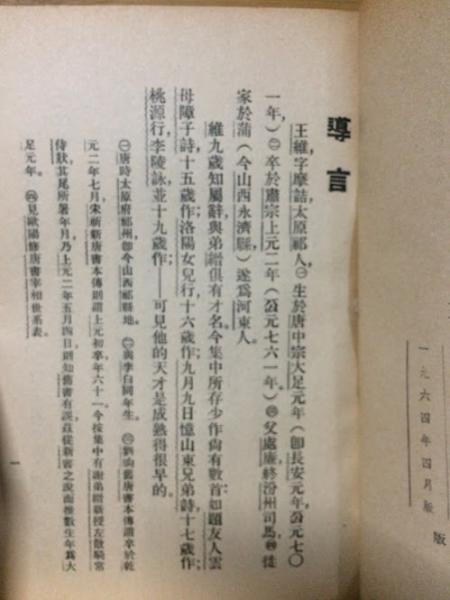 一九六四年四月版
版
導言
王維，字摩詰，太原祁人㊀生於唐中宗大足元年（卽長安元年，公元七〇
一年）㊁卒於肅宗上元二年（公元七六一年）㊂父處廉，終汾州司馬，㊃徙
家於蒲（今山西永濟縣），遂爲河東人。
維九歲知屬辭，與弟縉俱有才名。今集中所存少作尙有數首：如題友人雲
母障子詩，十五歲作；洛陽女兒行，十六歲作；九月九日憶山東兄弟詩，十七歲作；
桃源行，李陵詠，並十九歲作——可見他的天才是成熟得很早的。
㊀唐時太原府祁州，卽今山西祁縣地。㊁與李白同年生。㊂劉昫舊唐書本傳謂卒於乾
元二年七月，宋祁新唐書本傳則謂上元初卒，年六十一。今按集中有謝弟縉新授左散騎常
侍狀，其尾所署年月乃上元二年五月四日，則知舊書有誤，茲從新書之說而推數生年爲大
足元年。㊃見歐陽修唐書宰相世系表。
一